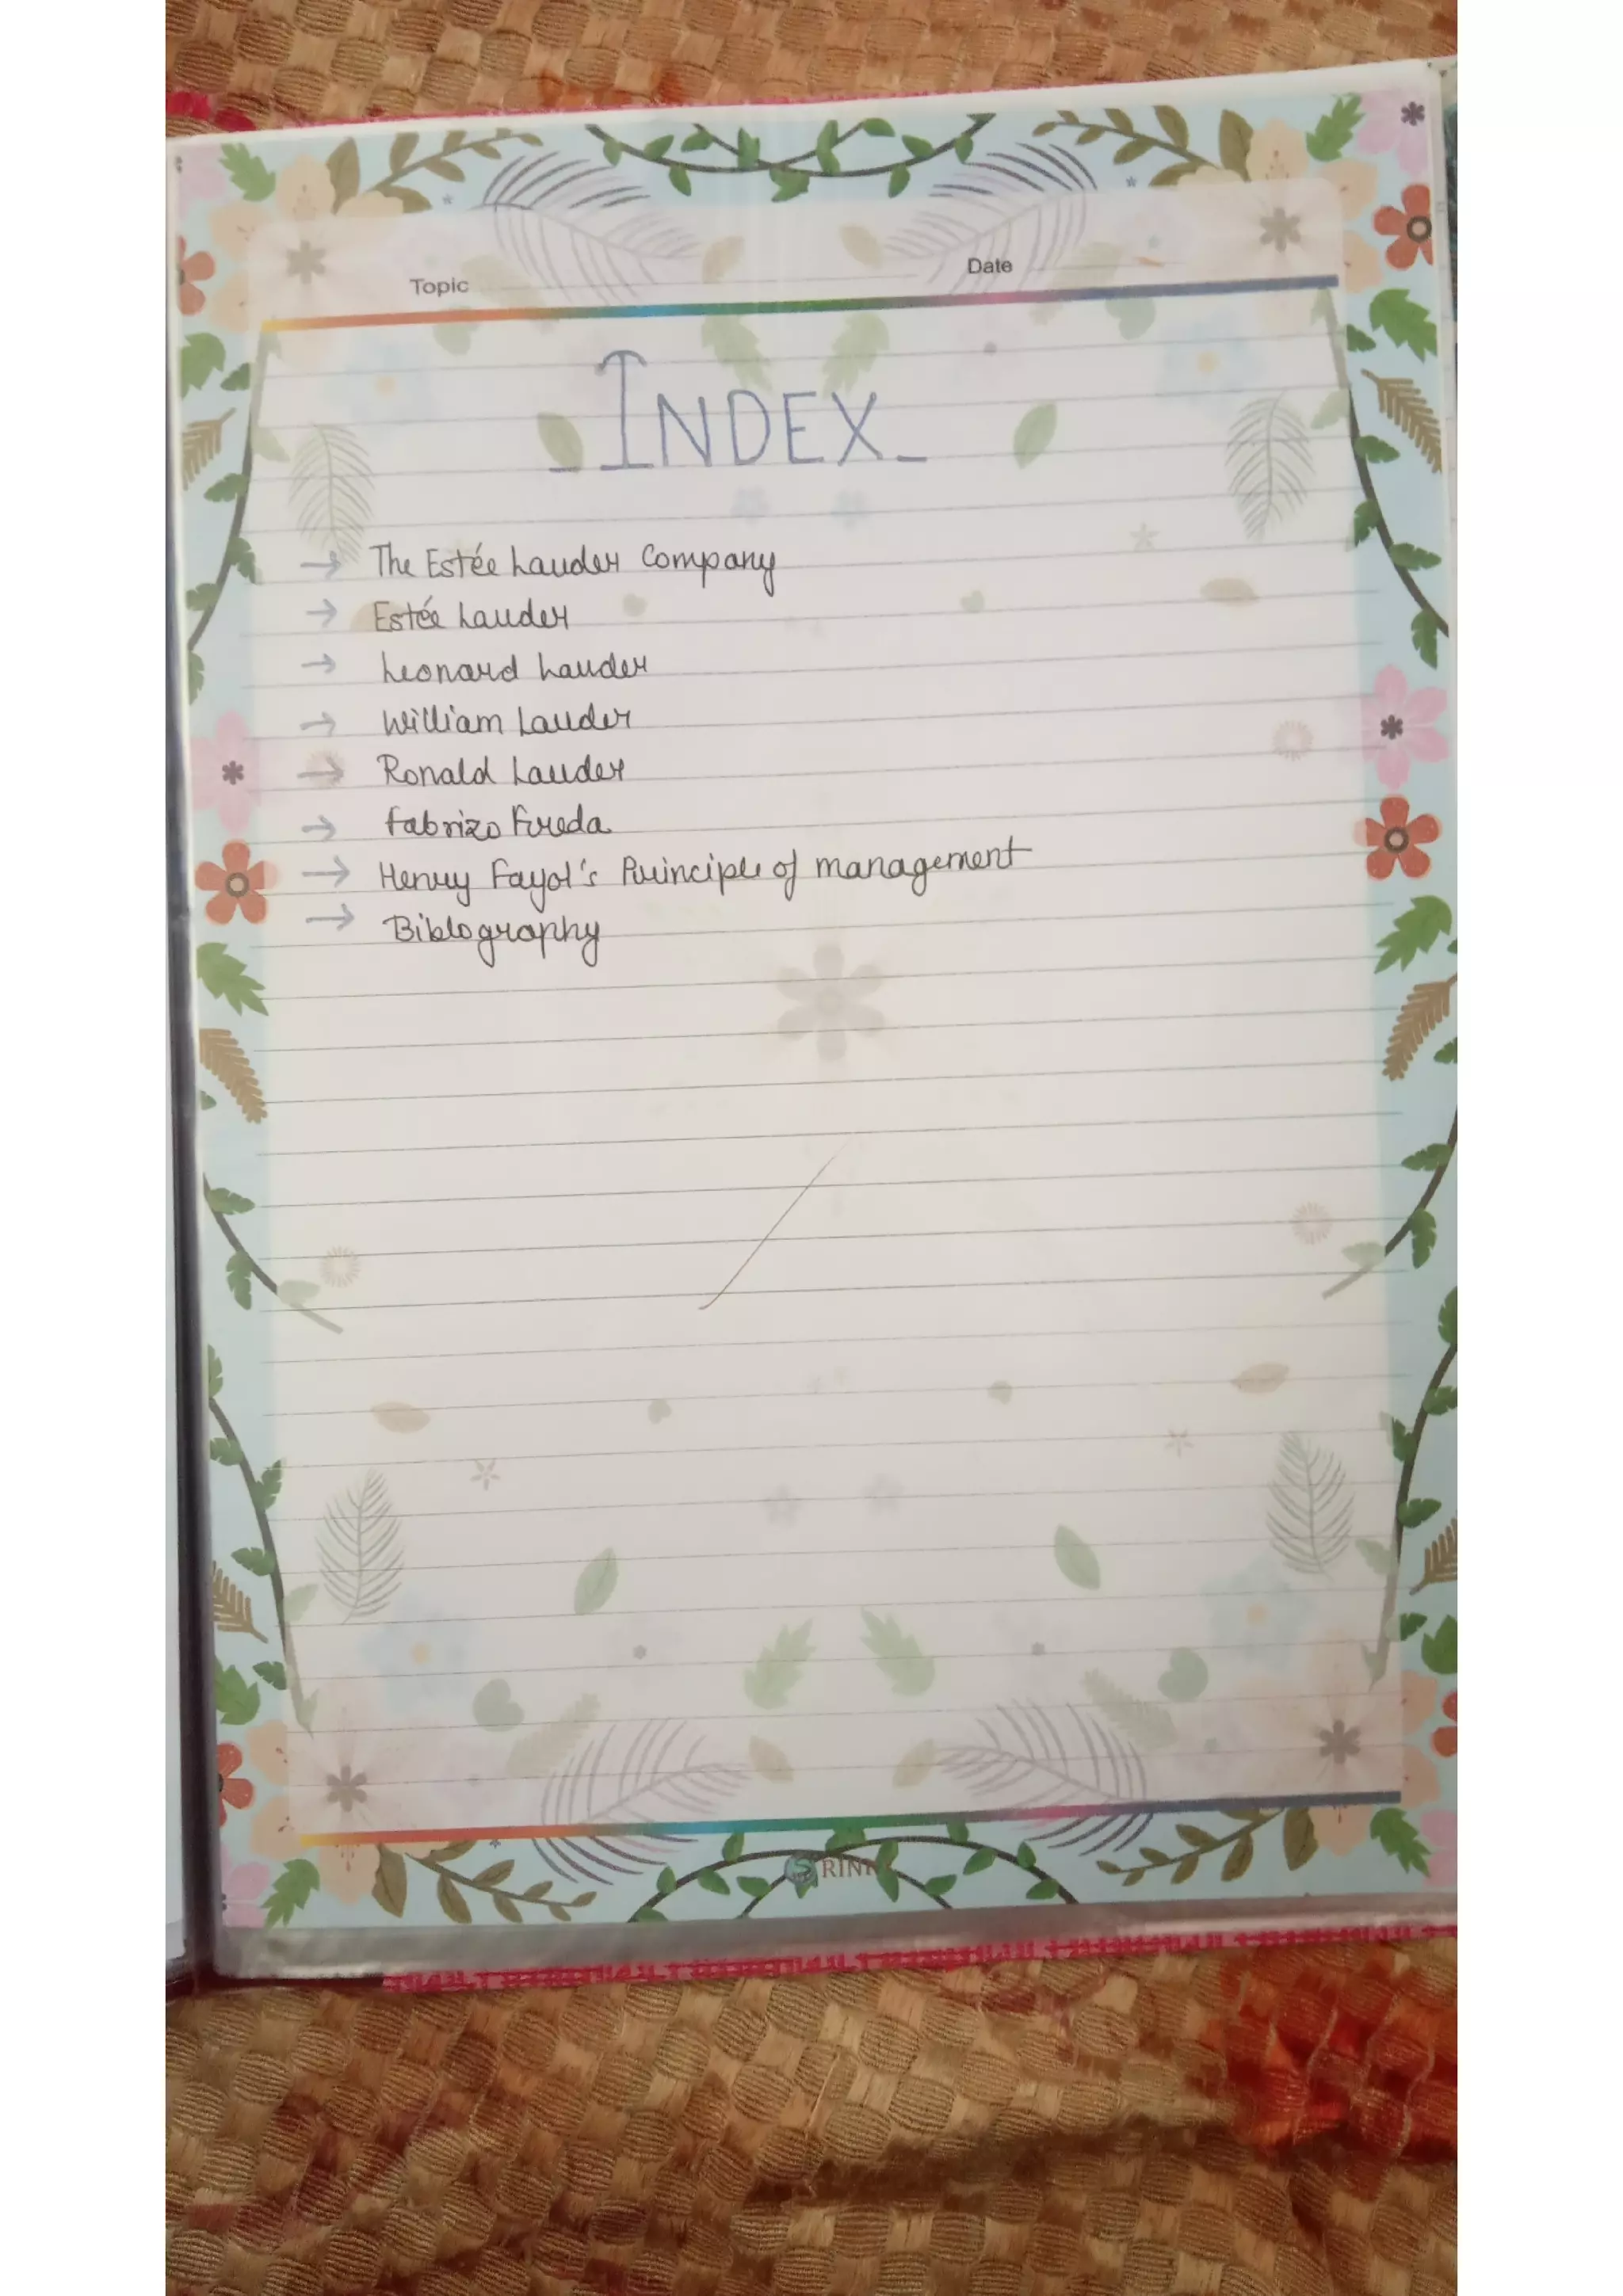 Topic Date
INDEX
→ The Estée Lauder Company
→ Estée Lauder
→ Leonard Lauder
→ William Lauder
→ Ronald Lauder
→ Fabrizo Freda
→ Henry Fayol's Principle of management
→ Biblography